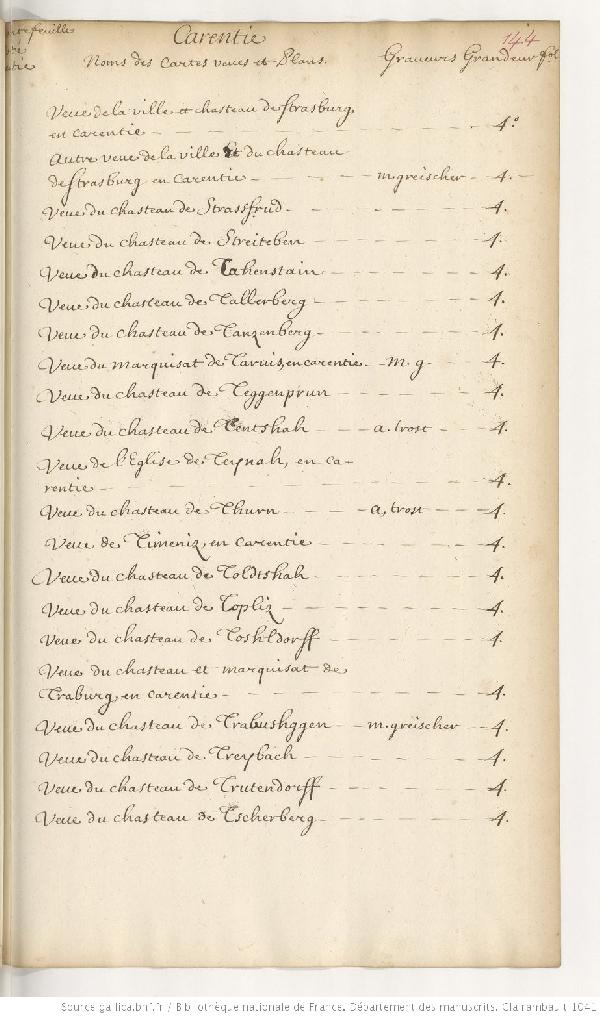 Carentie
144
Noms des Cartes veues et Plans. Graveurs Grandeur fol
Veue de la ville et chasteau de Strasburg
en carentie 4.º
Autre veue de la ville et du chasteau
de Strasburg en Carentie m. greischer 4.
Veue du chasteau de Strassfrud 4.
Veue du chasteau de Streiteben 4.
Veue du chasteau de Takenstain 4.
Veue du chasteau de Tallerberg 4.
Veue du chasteau de Tanzenberg 4.
Veue du marquisat de Tarvis, en carentie. m. g. 4.
Veue du chasteau de Teggenprun 4.
Veue du chasteau de Tentshah a. trost 4.
Veue de l'Eglise de Teynah, en ca-
rentie 4.
Veue du chasteau de Thurn a. trost 4.
Veue de Timeniz en carentie 4.
Veue du chasteau de Toldtshah 4.
Veue du chasteau de Topliz 4.
Veue du chasteau de Toshldorff 4.
Veue du chasteau et marquisat de
Traburg en carentie 4.
Veue du chasteau de Trabushggen m. greischer 4.
Veue du chasteau de Treybach 4.
Veue du chasteau de Trutendorff 4.
Veue du chasteau de Tscherberg 4.
Source gallica.bnf.fr / Bibliothèque nationale de France. Département des manuscrits. Clairambault 1041